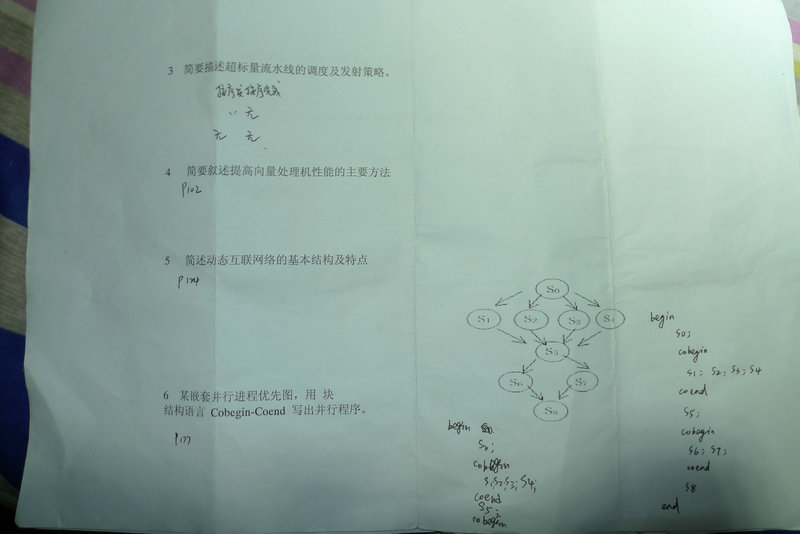 3 简要描述超标量流水线的调度及发射策略。
按序发按序完成
〃 无
无 无
4 简要叙述提高向量处理机性能的主要方法
P102
5 简述动态互联网络的基本结构及特点
6 某嵌套并行进程优先图，用 块
结构语言 Cobegin-Coend 写出并行程序。
P177
S0
S1 S2 S3 S4
S5
S6 S7
S8
begin
S0;
cobegin
S1 S2 S3; S4;
coend
S5;
cobegin
begin
S0;
cobegin
S1; S2; S3; S4
coend
S5;
cobegin
S6; S7;
coend
S8
end